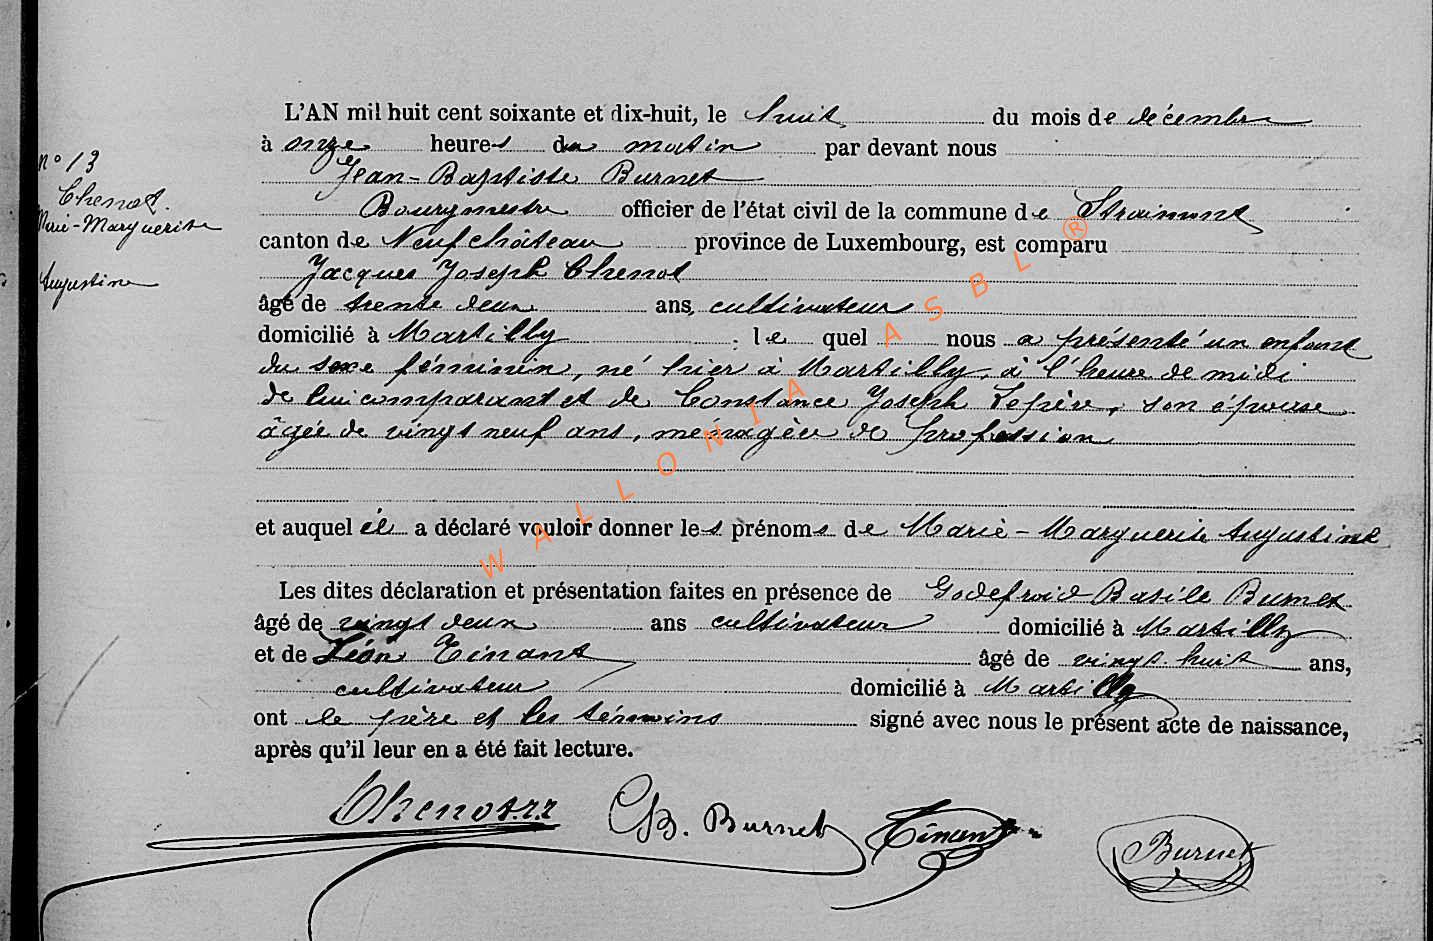 L'AN mil huit cent soixante et dix-huit, le huit du mois de décembre
à onze heures du matin par devant nous
Jean-Baptiste Burnet
Bourgmestre officier de l'état civil de la commune de Straimont
canton de Neufchâteau province de Luxembourg, est comparu
Jacques Joseph Chenot
âgé de trente deux ans, cultivateur
domicilié à Martilly ; le quel nous a présenté un enfant
du sexe féminin, né hier à Martilly, à l'heure de midi
de lui comparant et de Constance Joseph Lepère, son épouse
âgée de vingt neuf ans, ménagère de profession
et auquel il a déclaré vouloir donner les prénoms de Marie-Marguerite Augustine
Les dites déclaration et présentation faites en présence de Godefroid Basile Burnet
âgé de vingt deux ans cultivateur domicilié à Martilly
et de Léon Tinant âgé de vingt-huit ans,
cultivateur domicilié à Martilly
ont le père et les témoins signé avec nous le présent acte de naissance,
après qu'il leur en a été fait lecture.
N° 13
Chenot.
Marie-Marguerite
Augustine
Chenot J. J. GB. Burnet Tinant Burnet
WALLONIA ASBL ®